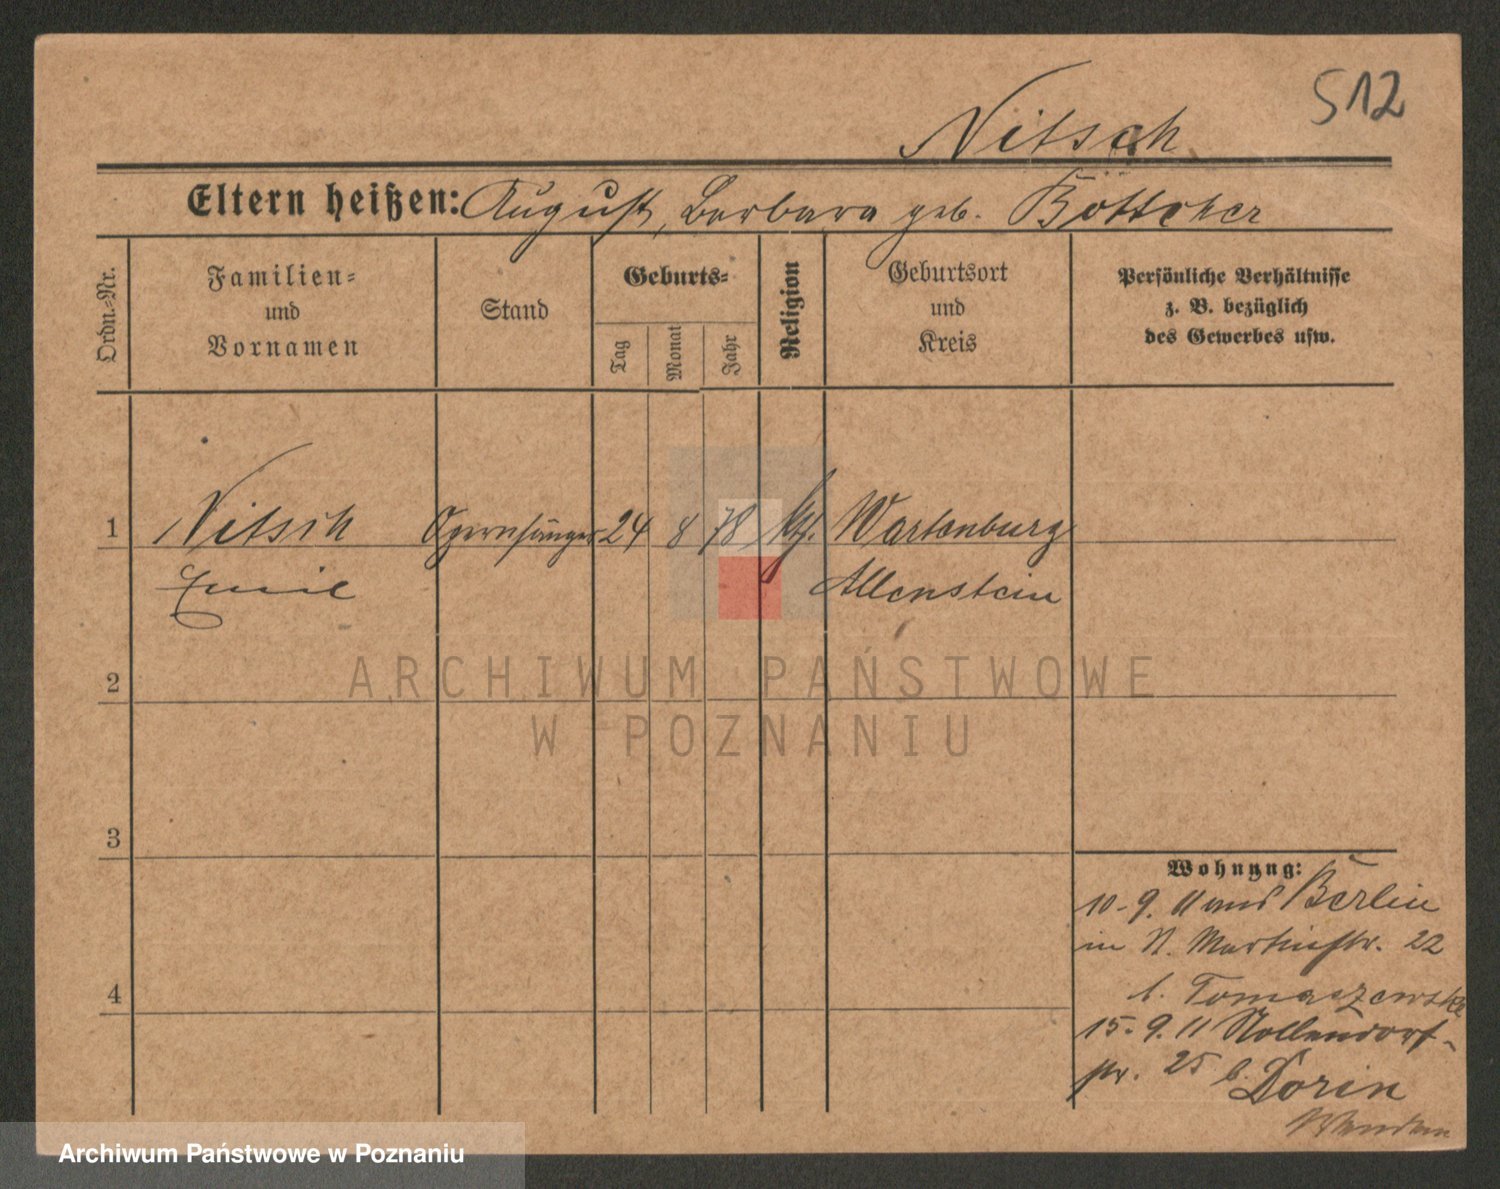 512
Nitsch
Eltern heißen: August, Barbara geb. Böttcher
Ordn.=Nr.
Familien=
und
Vornamen
Stand
Geburts=
Tag
Monat
Jahr
Religion
Geburtsort
und
Kreis
Persönliche Verhältnisse
z. B. bezüglich
des Gewerbes usw.
1 Nitsch Opernsänger 24 8 78 kth. Wartenburg
Emil Allenstein
2
3
4
Wohnyng:
10-9. 11 aus Berlin
in N. Martinstr. 22
b. Tomaszewski
15-9. 11 Nollendorf-
str. 25 b. Dorin
ARCHIWUM PAŃSTWOWE
W POZNANIU
Archiwum Państwowe w Poznaniu